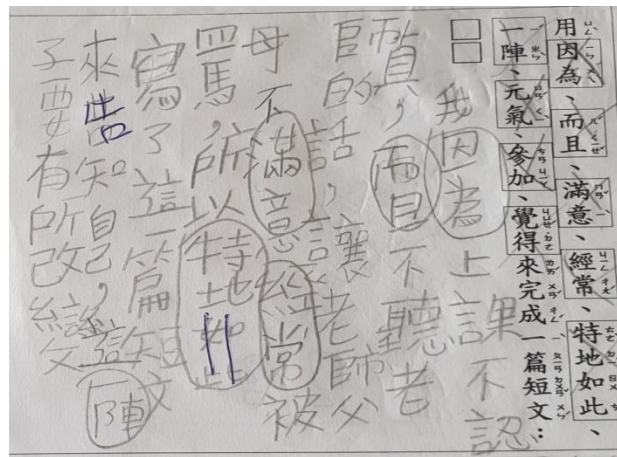 用因為、而且、滿意、經常、特地如此、
一陣、元氣、參加、覺得來完成一篇短文：
我因為上課不認
質，而且不聽老
師的話，讓老師父
母不滿意經常被
罵，所以特地如此
寫了這一篇短文
來告知自己，這一陣
子要有所改變